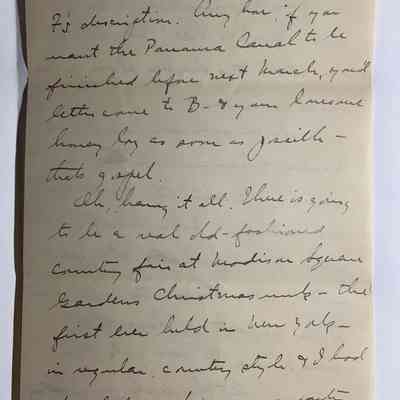 F's description. Any how, if you
want the Panama Canal to be
finished before next March, you'd
better come to B - & your
honey boy as soon as possible -
that's gospel.
Oh, hang it all. There is going
to be a real old-fashioned
country fair at Madison Square
Gardens Christmas week - the
first ever held in New York -
in regular country style & I had